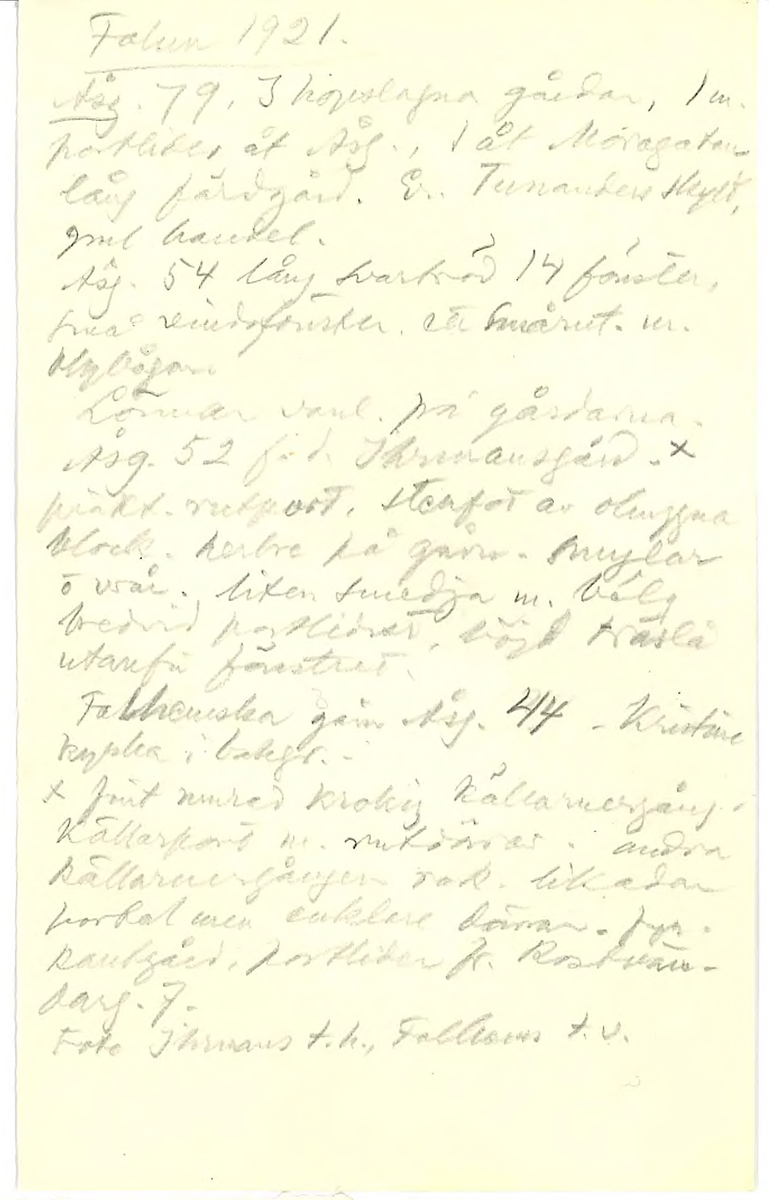 Falun 1921.
Åsg. 79, 3 hopslagna gårdar, 1 m.
portlider åt Åsg., 1 åt Moragatan
lång färdgård. Tunanders skylt,
handel.
Åsg. 54 lång 14 fönster,
små vindsfönster. smårut. m.
Lönnar vanl. på gårdarna.
Åsg. 52 f.d. Ihrmansgård. x
präkt. rutport. stenfot av ohuggna
block. herbre på gården. smyglar
o vrår. liten smedja m. bälg
bredvid portlidret, böjd träslå
utanför fönstret.
Falhemska gården Åsg. 44 - Kristine
kyrka i bakgr. -
x fint murad krokig källarnergång.
Källarport m. rutdörrar. andra
källarnergången rak. likadan
portal men enklare dörrar. fyr-
kantgård, portlider fr.
darg. 7.
Foto Ihrmans t.h., Falhems t.v.